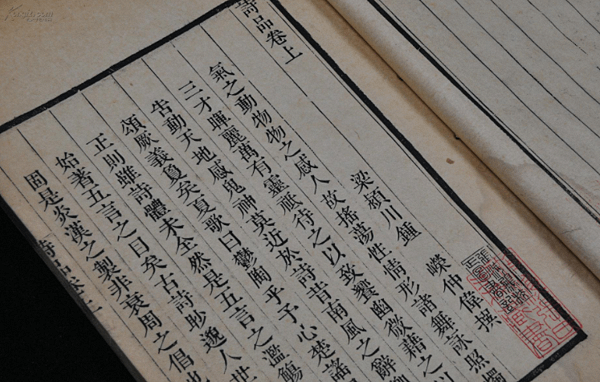 詩品卷上
梁頴川鍾 嶸仲偉撰
氣之動物物之感人故搖蕩性情形諸舞詠照燭
三才暉麗萬有靈祇待之以致饗幽微藉之以
告動天地感鬼神莫近於詩昔南風之辭
頌厥義敻矣夏歌曰鬱陶乎予心楚謠
正則雖詩體未全然是五言之濫觴
始著五言之目矣古詩眇邈人世
固是炎漢之製非衰周之倡也
詩品卷上